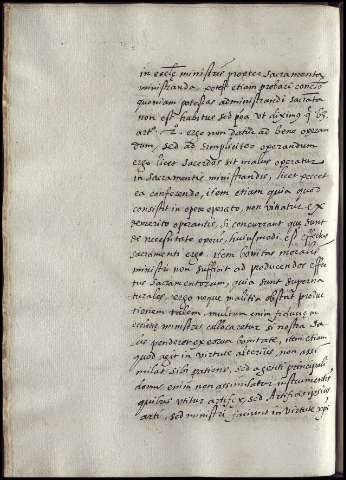 in eccłę ministris propter sacramenta
ministranda potest etiam probari conclᵒ
quoniam potestas administrandi sacrata
non est habitus sed poa. ut diximꝰ q̃ 63
artᵒ 2º ergo non detur ad bene operan
dum, sed ad simpliciter operandum
ergo licet sacerdos sit malus operatur
in sacramentis ministrandis, licet peccet
ea conferendo, item etiam quia quod
consistit in opere operato, non vitiatur ex
demerito operantis, si concurrant quę sunt
de necessitate operis, huiusmodi est effectus
sacramenti ergo. item bonitas moralis
ministri non sufficit ad producendos effec
tus sacramentorum, quia sunt superna
turales, ergo neque malitia obstat produc
tionem talem, multum enim
ecclesię ministris collocaretur si nostra sa
lus penderet ex eorum bonitate, item etiam
quod agit in virtute alterius, non assi
milat sibi patiens, sed agenti principali
domus enim non assimilatur instrumentis,
quibus utitur artifex, sed artificis ipsius
arti, sed ministri faciunt in virtute xpi